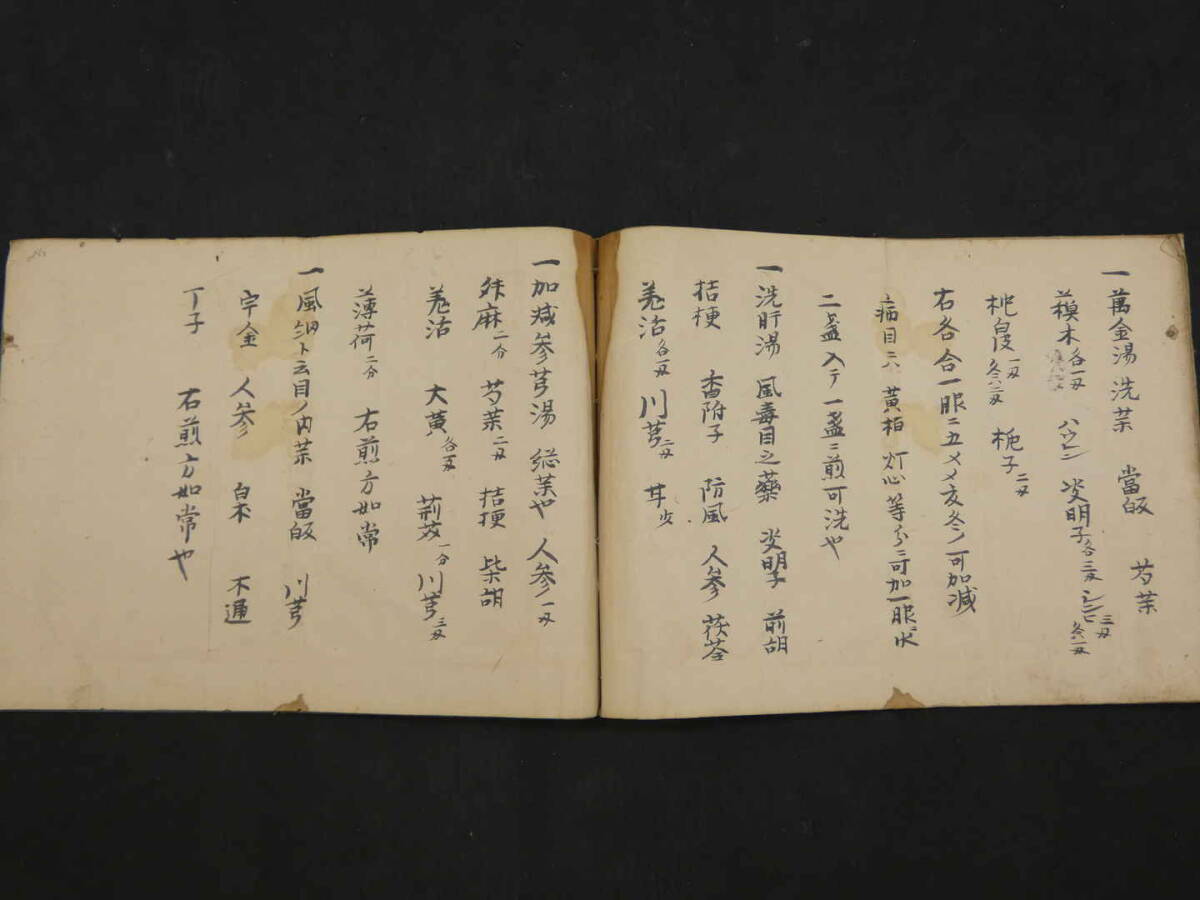 一 萬金湯 洗薬 當皈 芍薬
木各一匁 决明子各三匁
一匁 栀子二匁
右各合一服ニ五〆メ 可加減
病目ニハ 黄柏 灯心等分ニ可加一服ニ水
二盞入テ一盞ニ煎可洗也
一 洗肝湯 風毒目之藥 决明子 前胡
桔梗 香附子 防風 人参 茯苓
羗活各一匁 川芎二匁 甘少
一 加減参芎湯 総薬也 人参一匁
升麻二分 芍薬二匁 桔梗 柴胡
羗活 大黄各五匁 荊芥一分 川芎三匁
薄荷二分 右煎方如常
一 風 ト云目ノ内薬 當皈 川芎
宇金 人参 白朮 木通
丁子 右煎方如常也